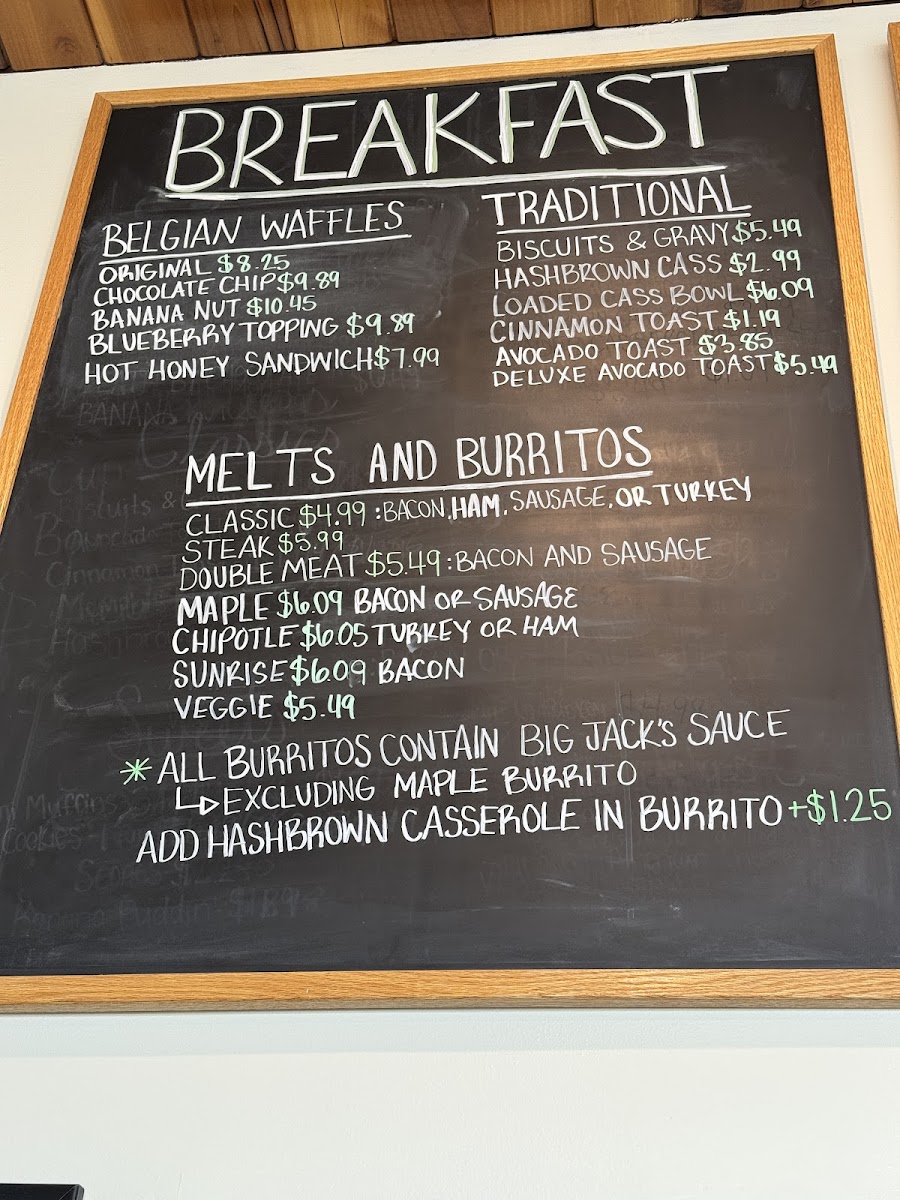 BREAKFAST
BELGIAN WAFFLES
ORIGINAL $8.25
CHOCOLATE CHIP $9.89
BANANA NUT $10.45
BLUEBERRY TOPPING $9.89
HOT HONEY SANDWICH $7.99
TRADITIONAL
BISCUITS & GRAVY $5.49
HASHBROWN CASS $2.99
LOADED CASS BOWL $6.09
CINNAMON TOAST $1.19
AVOCADO TOAST $3.85
DELUXE AVOCADO TOAST $5.49
MELTS AND BURRITOS
CLASSIC $4.99 : BACON, HAM, SAUSAGE, OR TURKEY
STEAK $5.99
DOUBLE MEAT $5.49 : BACON AND SAUSAGE
MAPLE $6.09 BACON OR SAUSAGE
CHIPOTLE $6.05 TURKEY OR HAM
SUNRISE $6.09 BACON
VEGGIE $5.49
* ALL BURRITOS CONTAIN BIG JACK'S SAUCE
↳ EXCLUDING MAPLE BURRITO
ADD HASHBROWN CASSEROLE IN BURRITO +$1.25